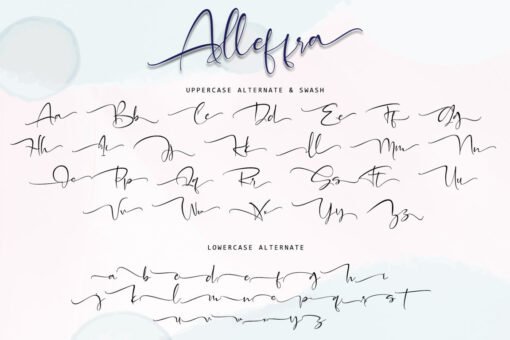 Alleffra
UPPERCASE ALTERNATE & SWASH
Aa Bb Cc Dd Ee Ff Gg
Hh Ii Jj Kk Ll Mm Nn
Oo Pp Qq Rr Ss Tt Uu
Vv Ww Xx Yy Zz
LOWERCASE ALTERNATE
a b c d e f g h i
j k l m n o p q r s t
u v w x y z